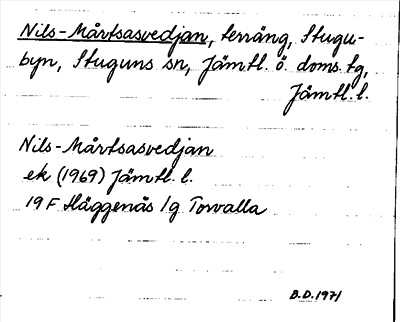 Nils-Mårtsasvedjan, terräng, Stugu-
byn, Stuguns sn, Jämtl. ö. doms. tg,
Jämtl. l.
Nils-Mårtsasvedjan
ek (1969) Jämtl. l.
19 F Häggenås 1g Torvalla
B.D. 1971